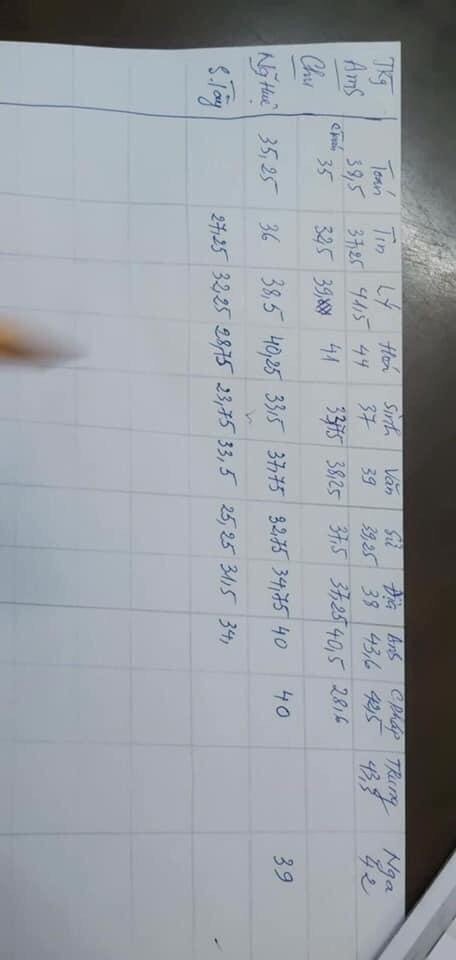 Toán Tin Lý Hoá Sinh Văn Sử Địa Anh C Pháp Trung Nga
Ams 39,5 37,25 41,5 44 37 39 39,25 38 43,6 42,5 43,3 42
Chu 35 32,5 39 41 33,75 38,25 37,5 37,25 40,5 28,6
Ng Huệ 35,25 36 38,5 40,25 33,5 37,75 32,75 34,75 40 40 39
S. Tây 27,25 32,25 28,75 23,75 33,5 25,25 31,5 34,